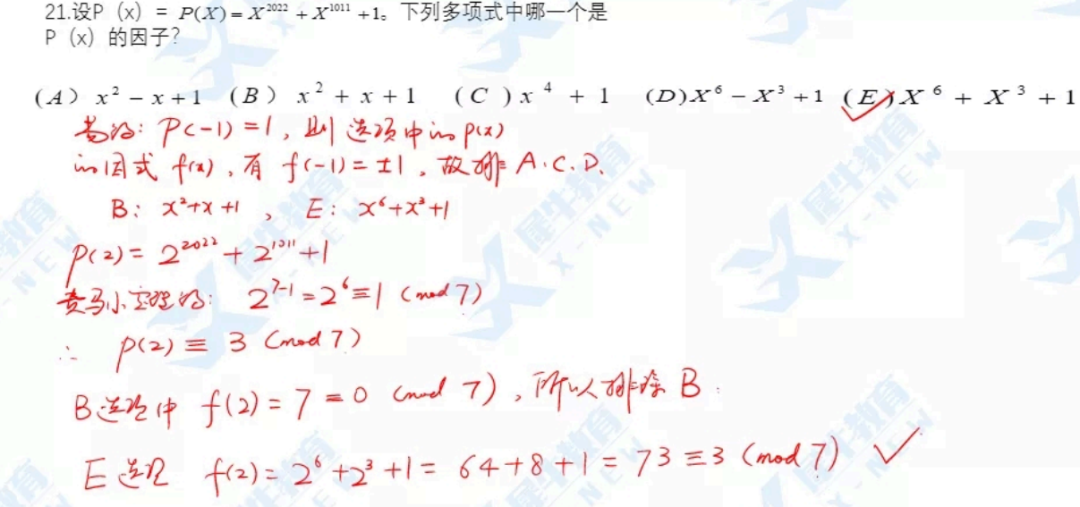 21.设P（x）= P(X)= X²⁰²² + X¹⁰¹¹ +1。下列多项式中哪一个是
P（x）的因子？
(A) x² − x + 1 (B) x² + x + 1 (C) x⁴ + 1 (D)X⁶ − X³ + 1 (E)X⁶ + X³ + 1
易得: P(-1)=1, 则选项中的P(x)
的因式 f(x), 有 f(-1)=±1, 故排 A.C.D.
B: x²+x+1 , E: x⁶+x³+1
P(2)= 2²⁰²² + 2¹⁰¹¹ +1
费马小定理得: 2⁷⁻¹=2⁶≡1 (mod 7)
∴ P(2) ≡ 3 (mod 7)
B选项中 f(2)=7≡0 (mod 7), 所以排除 B.
E选项 f(2)= 2⁶+2³+1= 64+8+1= 73≡3 (mod 7) ✓
犀牛教育
X-NEW